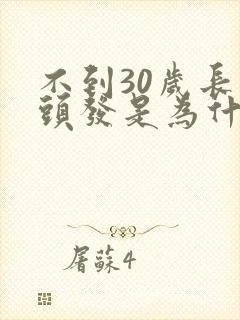 不到30歲長
頭發是為什
屠蘇4